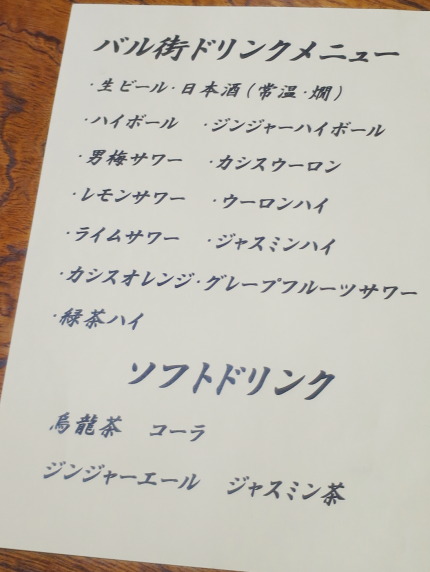 バル街ドリンクメニュー
・生ビール・日本酒(常温・燗)
・ハイボール ・ジンジャーハイボール
・男梅サワー ・カシスウーロン
・レモンサワー ・ウーロンハイ
・ライムサワー ・ジャスミンハイ
・カシスオレンジ・グレープフルーツサワー
・緑茶ハイ
ソフトドリンク
烏龍茶 コーラ
ジンジャーエール ジャスミン茶